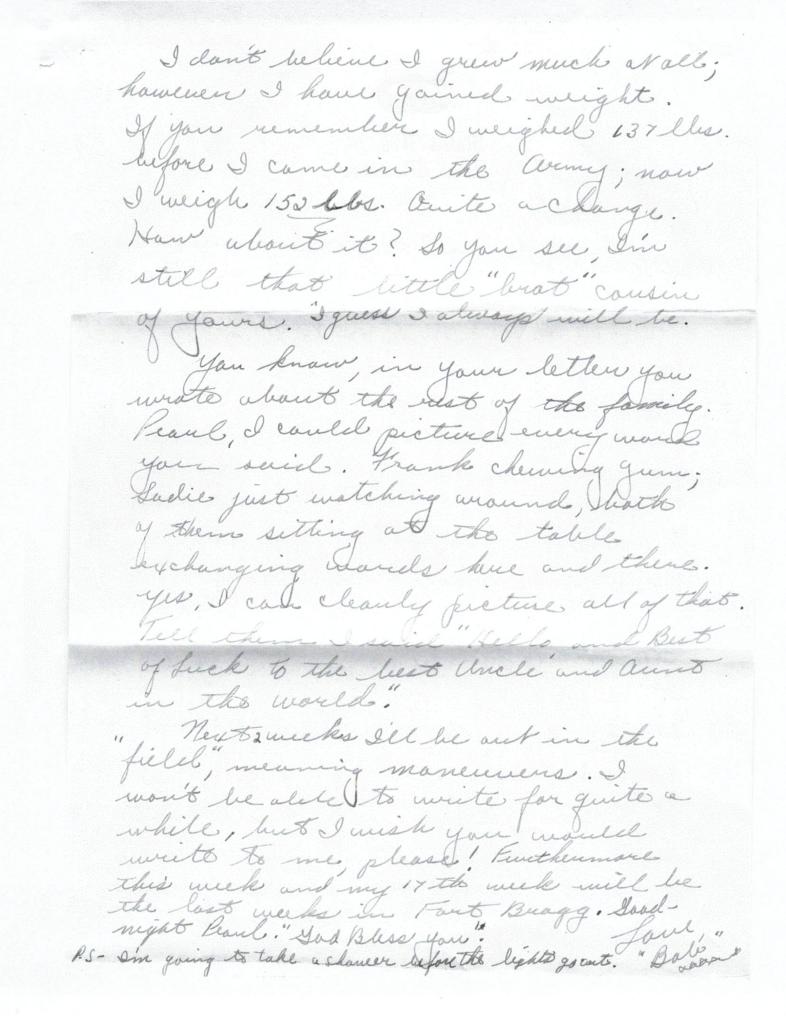 I don't believe I grew much at all;
however I have gained weight.
If you remember I weighed 137 lbs.
before I came in the Army; now
I weigh 152 lbs. Quite a change.
How about it? So you see, I'm
still that little "brat" cousin
of yours. I guess I always will be.
You know, in your letter you
wrote about the rest of the family.
Pearl, I could picture every word
you said. Frank chewing gum;
Sadie just watching around, both
of them sitting at the table
exchanging words here and there.
Yes, I can clearly picture all of that.
Tell them I said "Hello and Best
of Luck to the best Uncle and Aunt
in the world."
Next 2 weeks I'll be out in the
"field", meaning maneuvers. I
won't be able to write for quite a
while, but I wish you would
write to me, please! Furthermore
this week and my 17th week will be
the last weeks in Fort Bragg. Good-
night Pearl. "God Bless you".
Love,
P.S- I'm going to take a shower before the lights go out. "Bob"